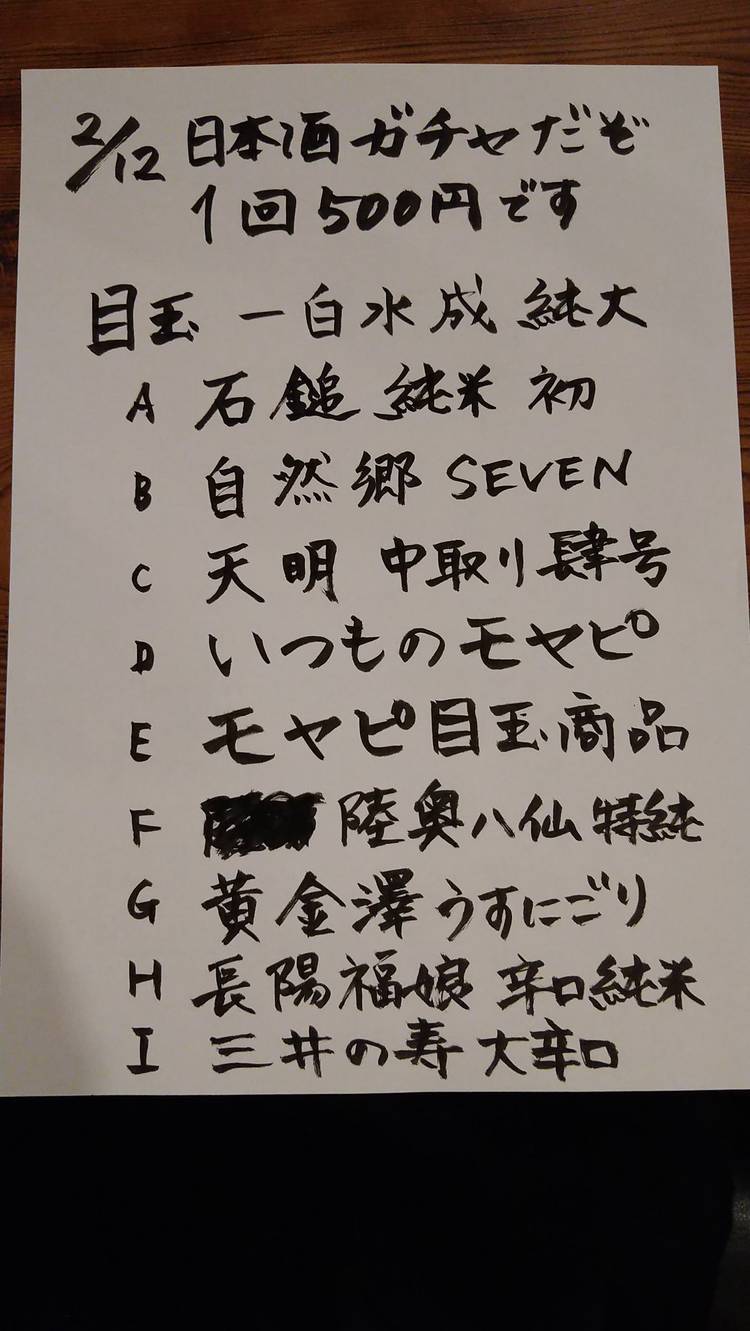 2/12 日本酒ガチャだぞ
1回500円です
目玉 一白水成 純大
A 石鎚 純米 初
B 自然郷 SEVEN
C 天明 中取り 肆号
D いつものモヤピ
E モヤピ目玉商品
F 陸奥八仙 特純
G 黄金澤 うすにごり
H 長陽福娘 辛口純米
I 三井の寿 大辛口